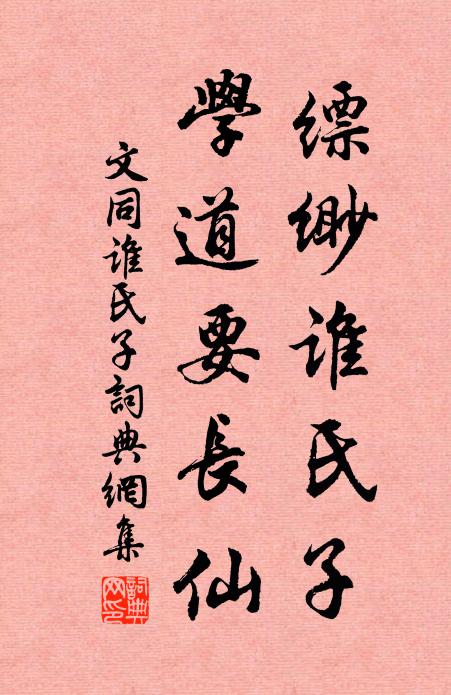 缥缈谁氏子
學道要長仙
文同谁氏子詞典網集
詞典網印